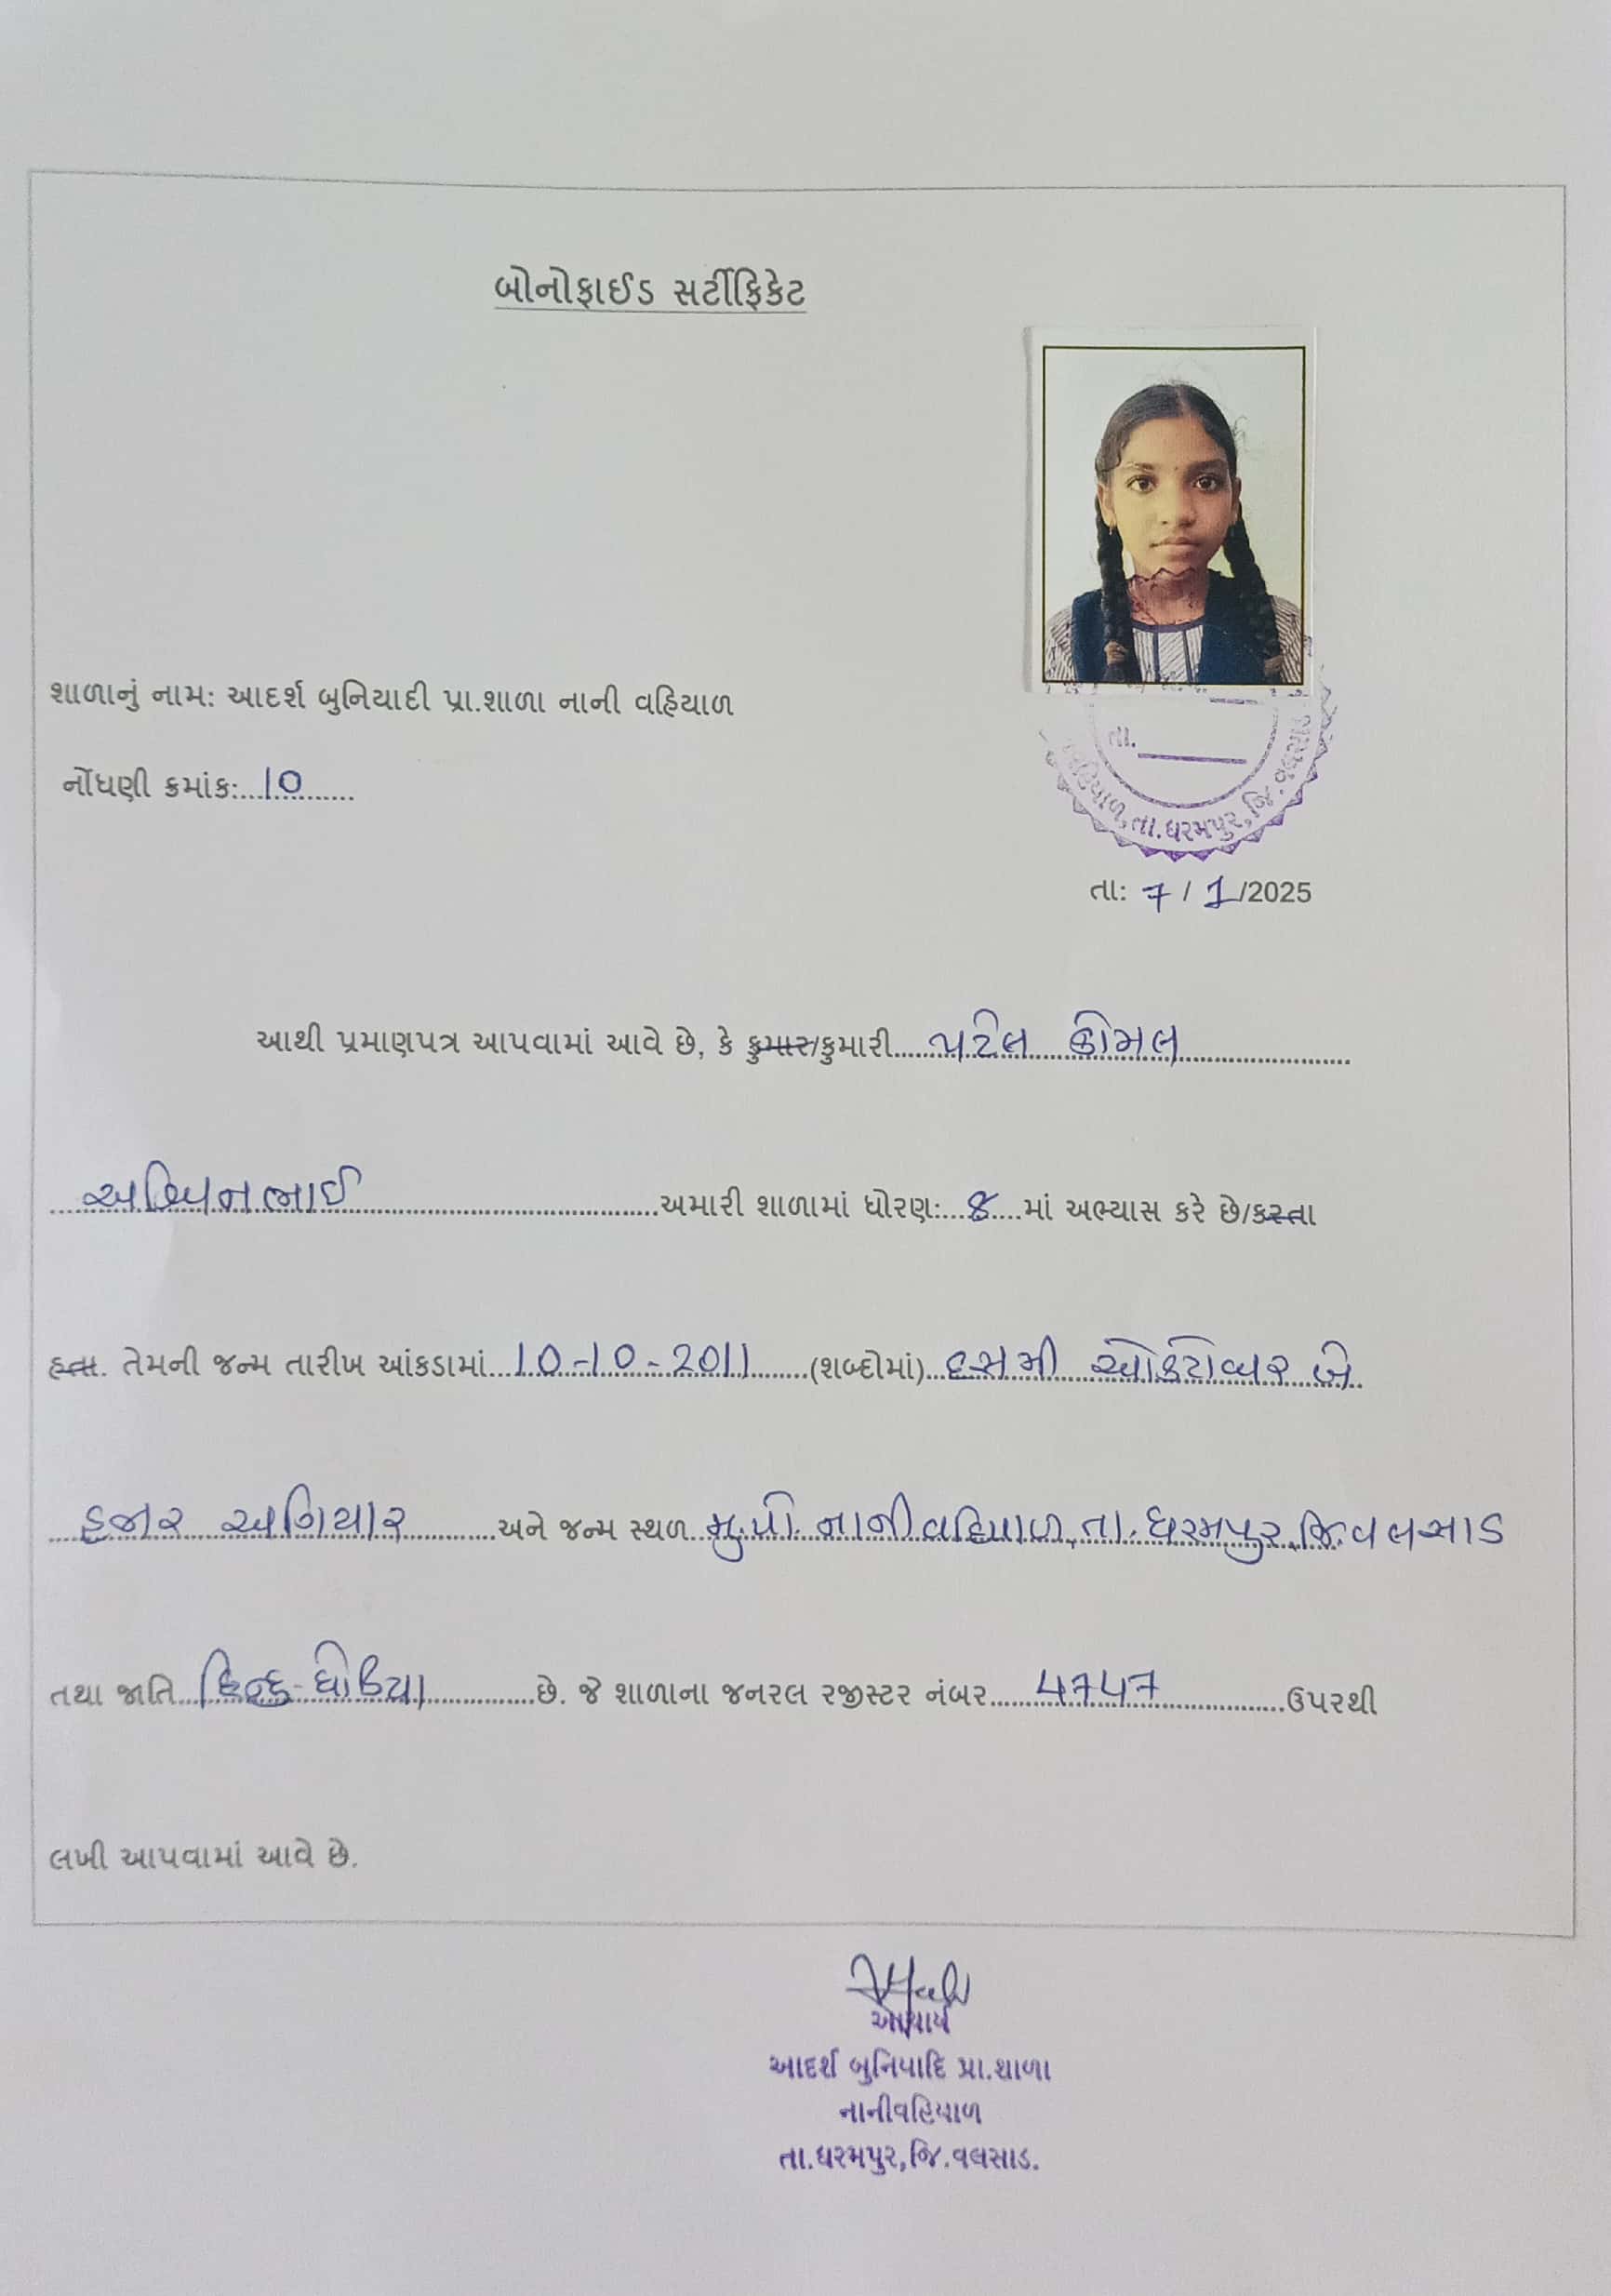 બોનોફાઈડ સર્ટીફિકેટ
શાળાનું નામ: આદર્શ બુનિયાદી પ્રા.શાળા નાની વહિયાળ
નોંધણી ક્રમાંક:...10..........
તા.
વહિયાળ, તા.ધરમપુર, જિ.વલસાડ
તા: 7 / 1 /2025
આથી પ્રમાણપત્ર આપવામાં આવે છે, કે કુમાર/કુમારી.....પટેલ કોમલ....................
....અશ્વિનભાઈ..............................અમારી શાળામાં ધોરણ:...8....માં અભ્યાસ કરે છે/કરતા
હતા. તેમની જન્મ તારીખ આંકડામાં...10-10-2011.......(શબ્દોમાં)..દસમી ઓક્ટોબર બે
...હજાર અગિયાર..........અને જન્મ સ્થળ..મુ.પો. નાનીવહિયાળ, તા. ધરમપુર, જિ.વલસાડ
તથા જાતિ..હિન્દુ-ધોડિયા...........છે. જે શાળાના જનરલ રજીસ્ટર નંબર.....4747............ઉપરથી
લખી આપવામાં આવે છે.
આચાર્ય
આદર્શ બુનિયાદિ પ્રા.શાળા
નાનીવહિયાળ
તા.ધરમપુર,જિ.વલસાડ.